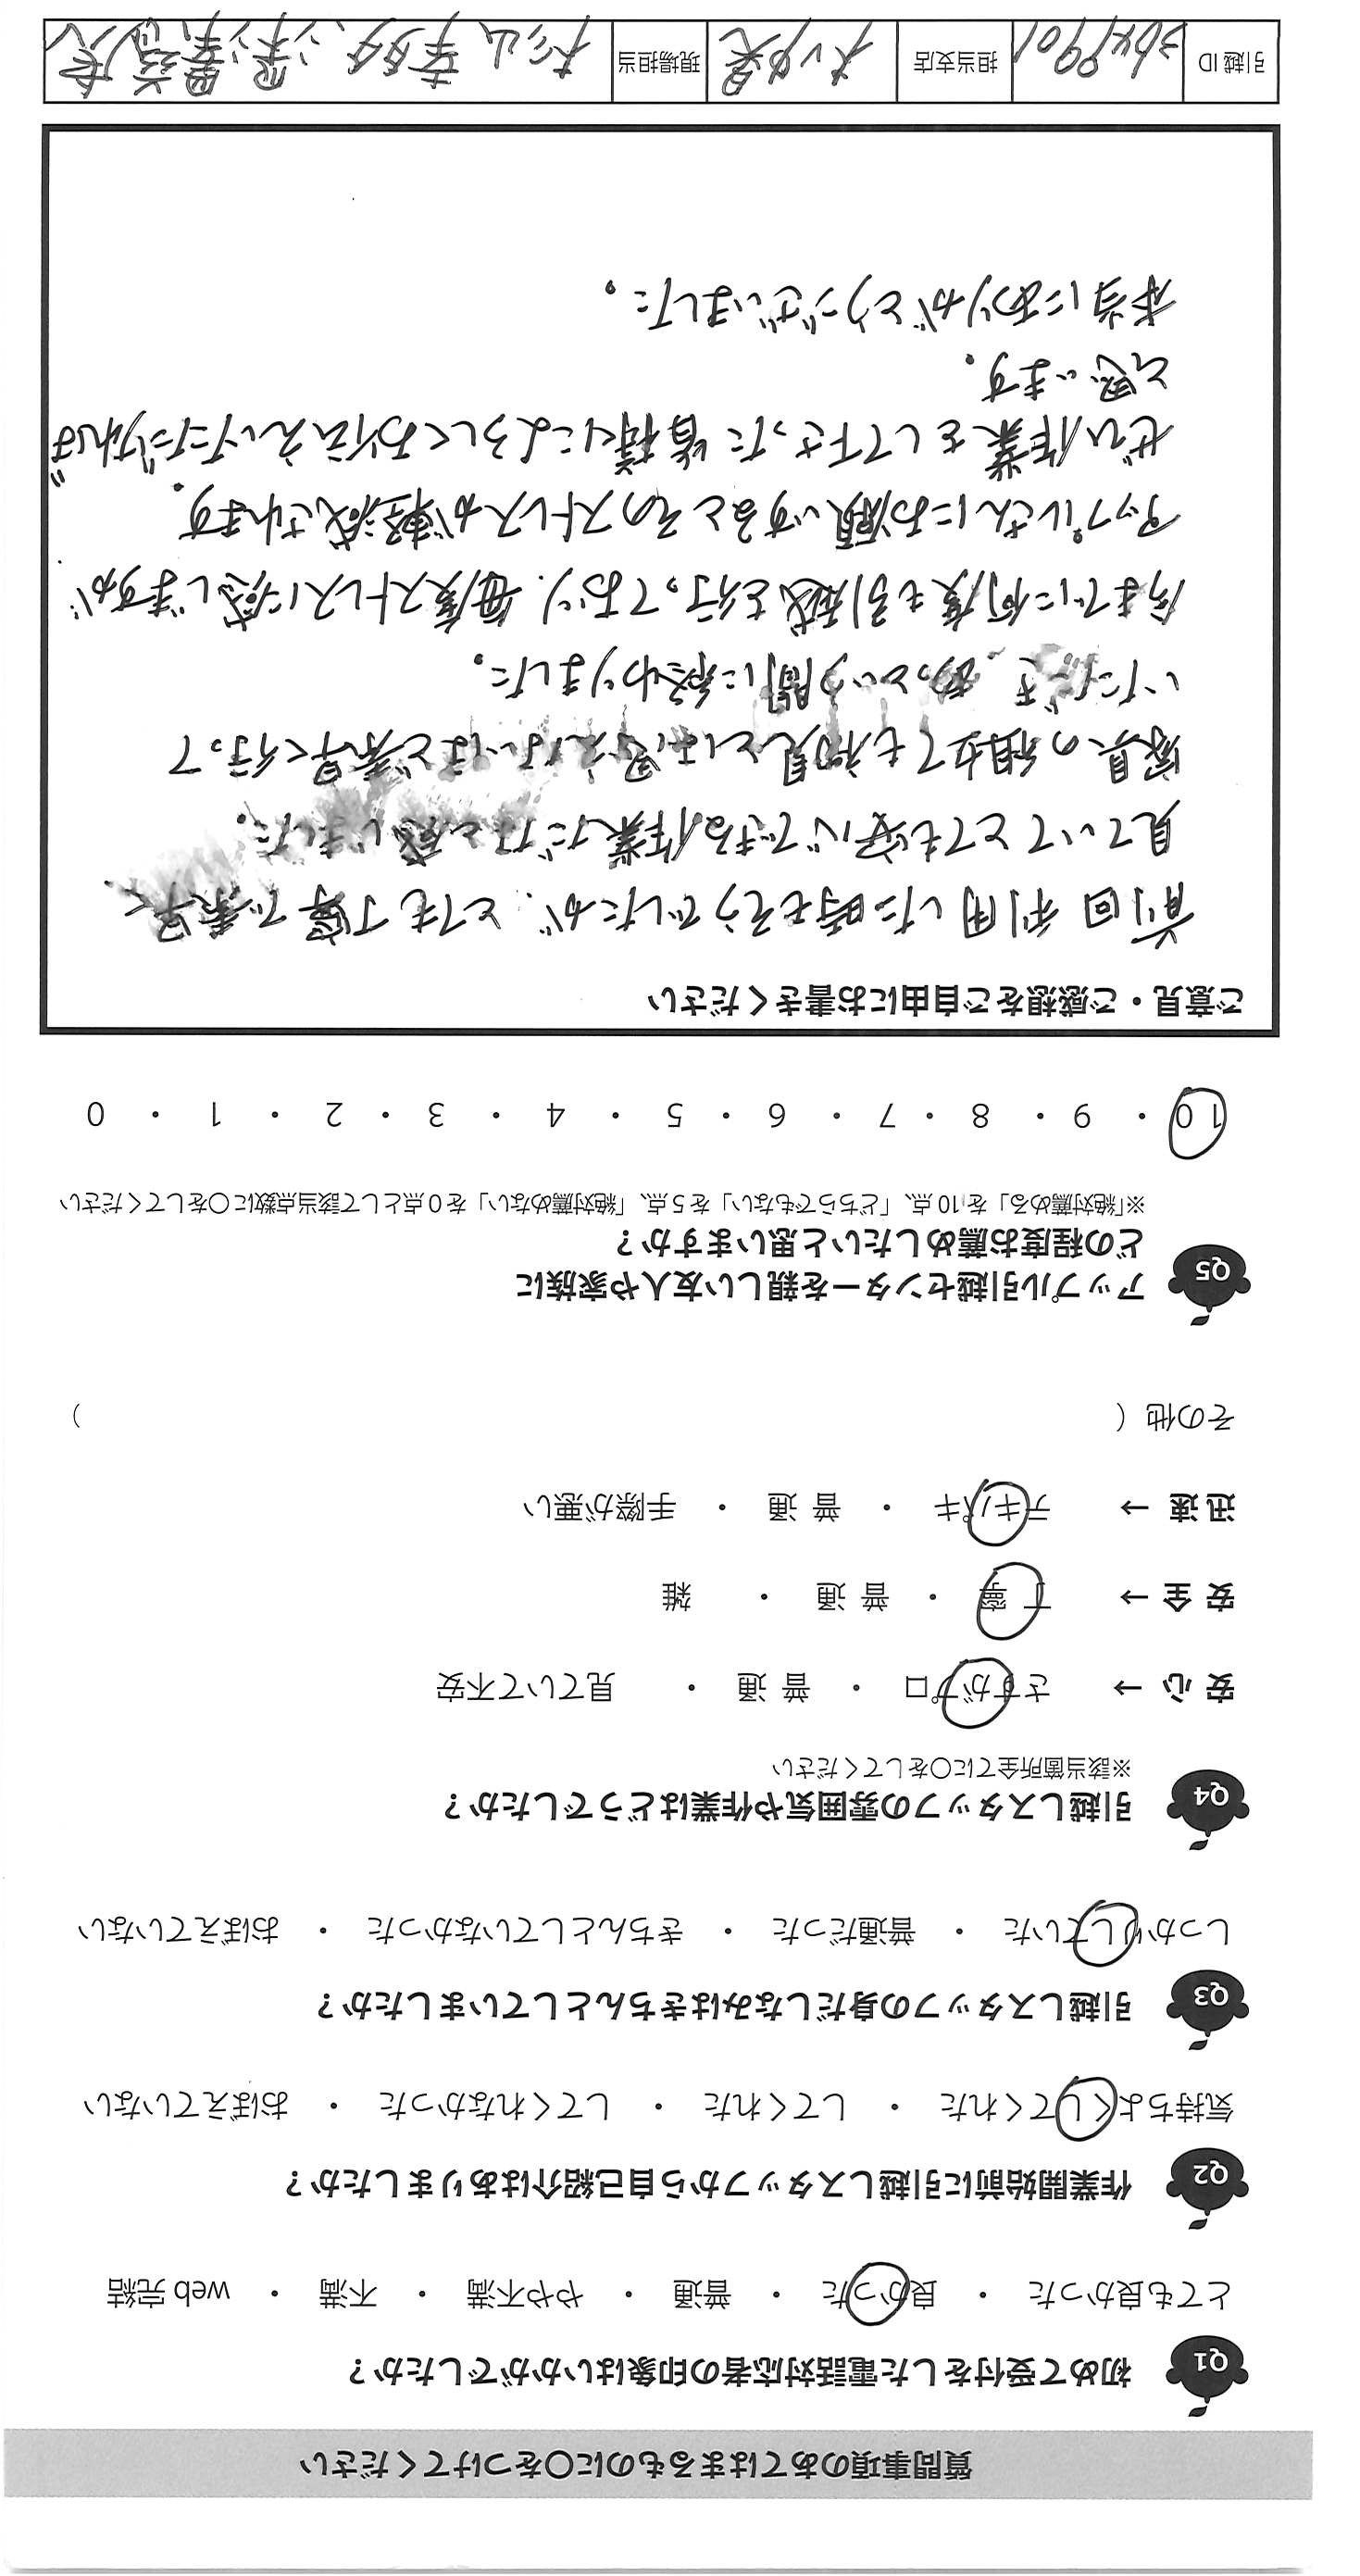 質問事項のあてはまるものに〇をつけてください
Q1 初めて受付をした電話対応者の印象はいかがでしたか？
とても良かった ・ 良かった ・ 普通 ・ やや不満 ・ 不満 ・ web 完結
Q2 作業開始前に引越しスタッフから自己紹介はありましたか？
気持ちよくしてくれた ・ してくれた ・ してくれなかった ・ おぼえていない
Q3 引越しスタッフの身だしなみはきちんとしていましたか？
しっかりしていた ・ 普通だった ・ きちんとしていなかった ・ おぼえていない
Q4 引越しスタッフの雰囲気や作業はどうでしたか？
※該当箇所全てに〇をしてください
安心 → さすがプロ ・ 普通 ・ 見ていて不安
安全 → 丁寧 ・ 普通 ・ 雑
迅速 → テキパキ ・ 普通 ・ 手際が悪い
その他（ ）
Q5 アップル引越センターを親しい友人や家族に
どの程度お薦めしたいと思いますか？
※「絶対薦める」を10点、「どちらでもない」を5点、「絶対薦めない」を0点として該当点数に〇をしてください
10 ・ 9 ・ 8 ・ 7 ・ 6 ・ 5 ・ 4 ・ 3 ・ 2 ・ 1 ・ 0
ご意見・ご感想をご自由にお書きください
前回利用した時もそうでしたが、とても丁寧で素早く
見ていてとても安心できる作業だなと感じました。
家具の組立ても初見とは思えないほど素早く行って
いただき、あっという間に終わりました。
今までに何度も引越を行っており、毎度ストレスに感じますが
アップルさんにお願いするとそのストレスが軽減されます。
ぜひ作業をして下さった皆様によろしくお伝えいただければ
と思います。
本当にありがとうございました。
引越ID 3649901 担当支店 現場担当 杉山